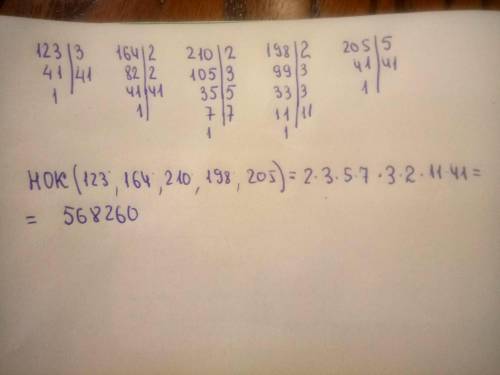 123|3 164|2 210|2 198|2 205|5
41|41 82|2 105|3 99|3 41|41
1 41|41 35|5 33|3 1
1 7|7 11|11
1 1
НОК (123, 164, 210, 198, 205) = 2·3·5·7·3·2·11·41 =
= 568260